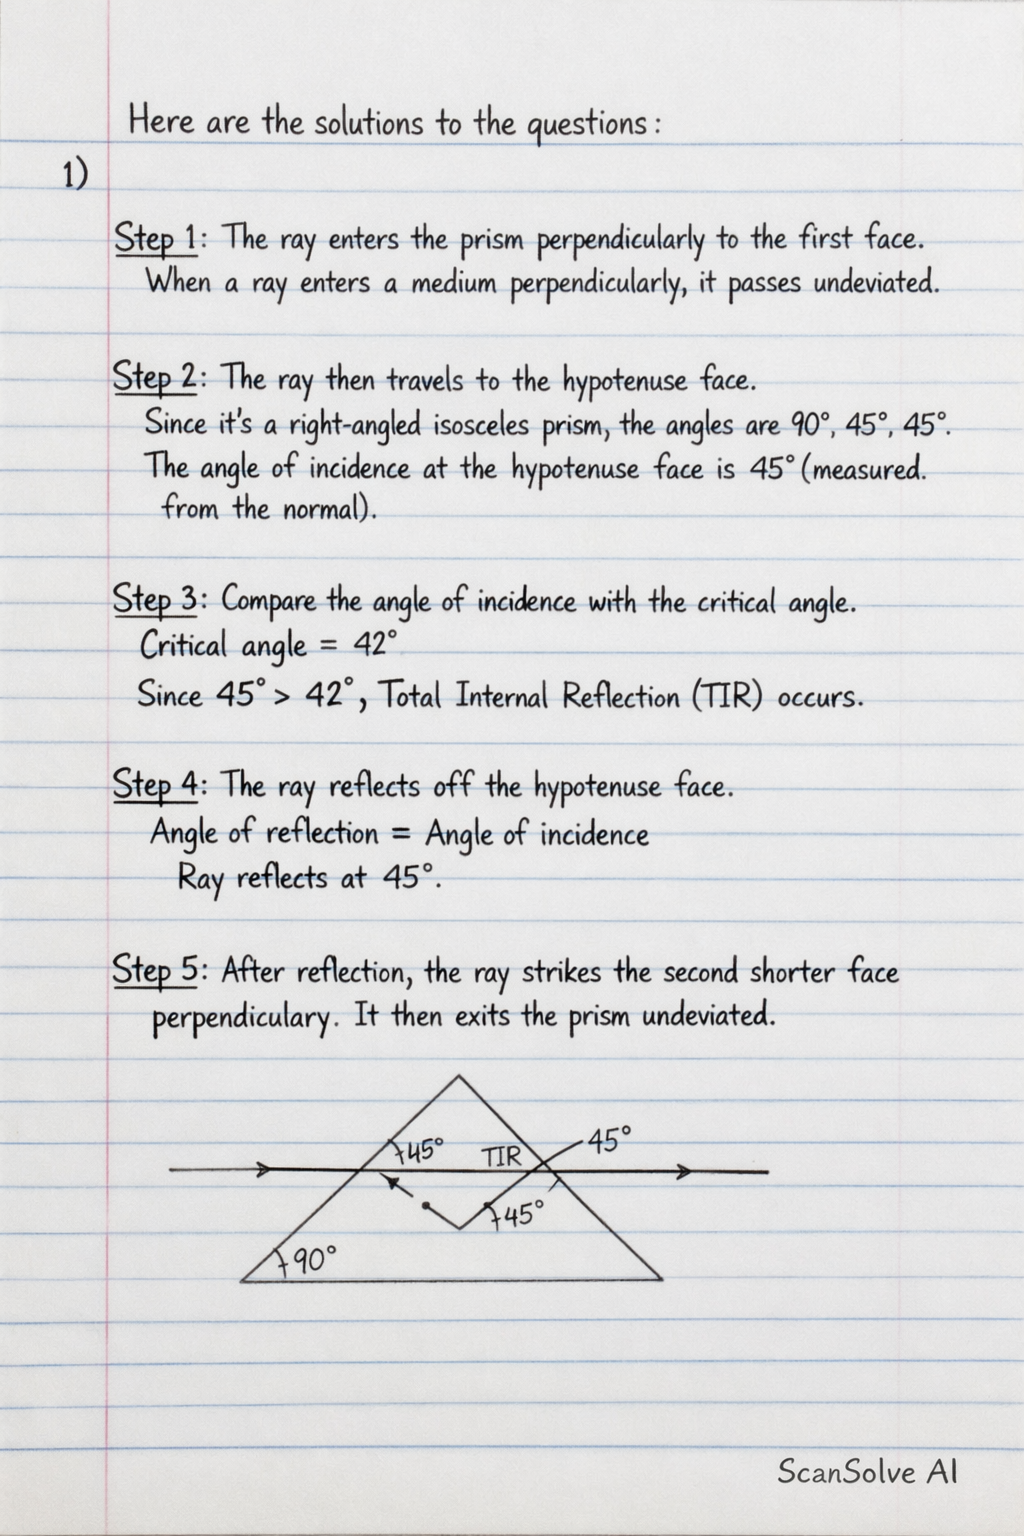 Here are the solutions to the questions:
1)
Step 1: The ray enters the prism perpendicularly to the first face.
When a ray enters a medium perpendicularly, it passes undeviated.
Step 2: The ray then travels to the hypotenuse face.
Since it's a right-angled isosceles prism, the angles are 90°, 45°, 45°.
The angle of incidence at the hypotenuse face is 45° (measured.
from the normal).
Step 3: Compare the angle of incidence with the critical angle.
Critical angle = 42°
Since 45° > 42°, Total Internal Reflection (TIR) occurs.
Step 4: The ray reflects off the hypotenuse face.
Angle of reflection = Angle of incidence
Ray reflects at 45°.
Step 5: After reflection, the ray strikes the second shorter face
perpendiculary. It then exits the prism undeviated.
45°
45°
TIR
45°
90°
ScanSolve AI